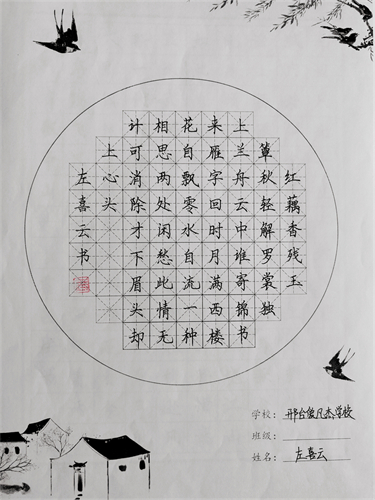 红藕香残玉
簟秋轻解罗裳独
上兰舟云中谁寄锦书
来雁字回时月满西楼
花自飘零水自流一种
相思两处闲愁此情无
计可消除才下眉头却
上心头
左喜云书
学校：邢台凡杰学校
班级：
姓名：左喜云